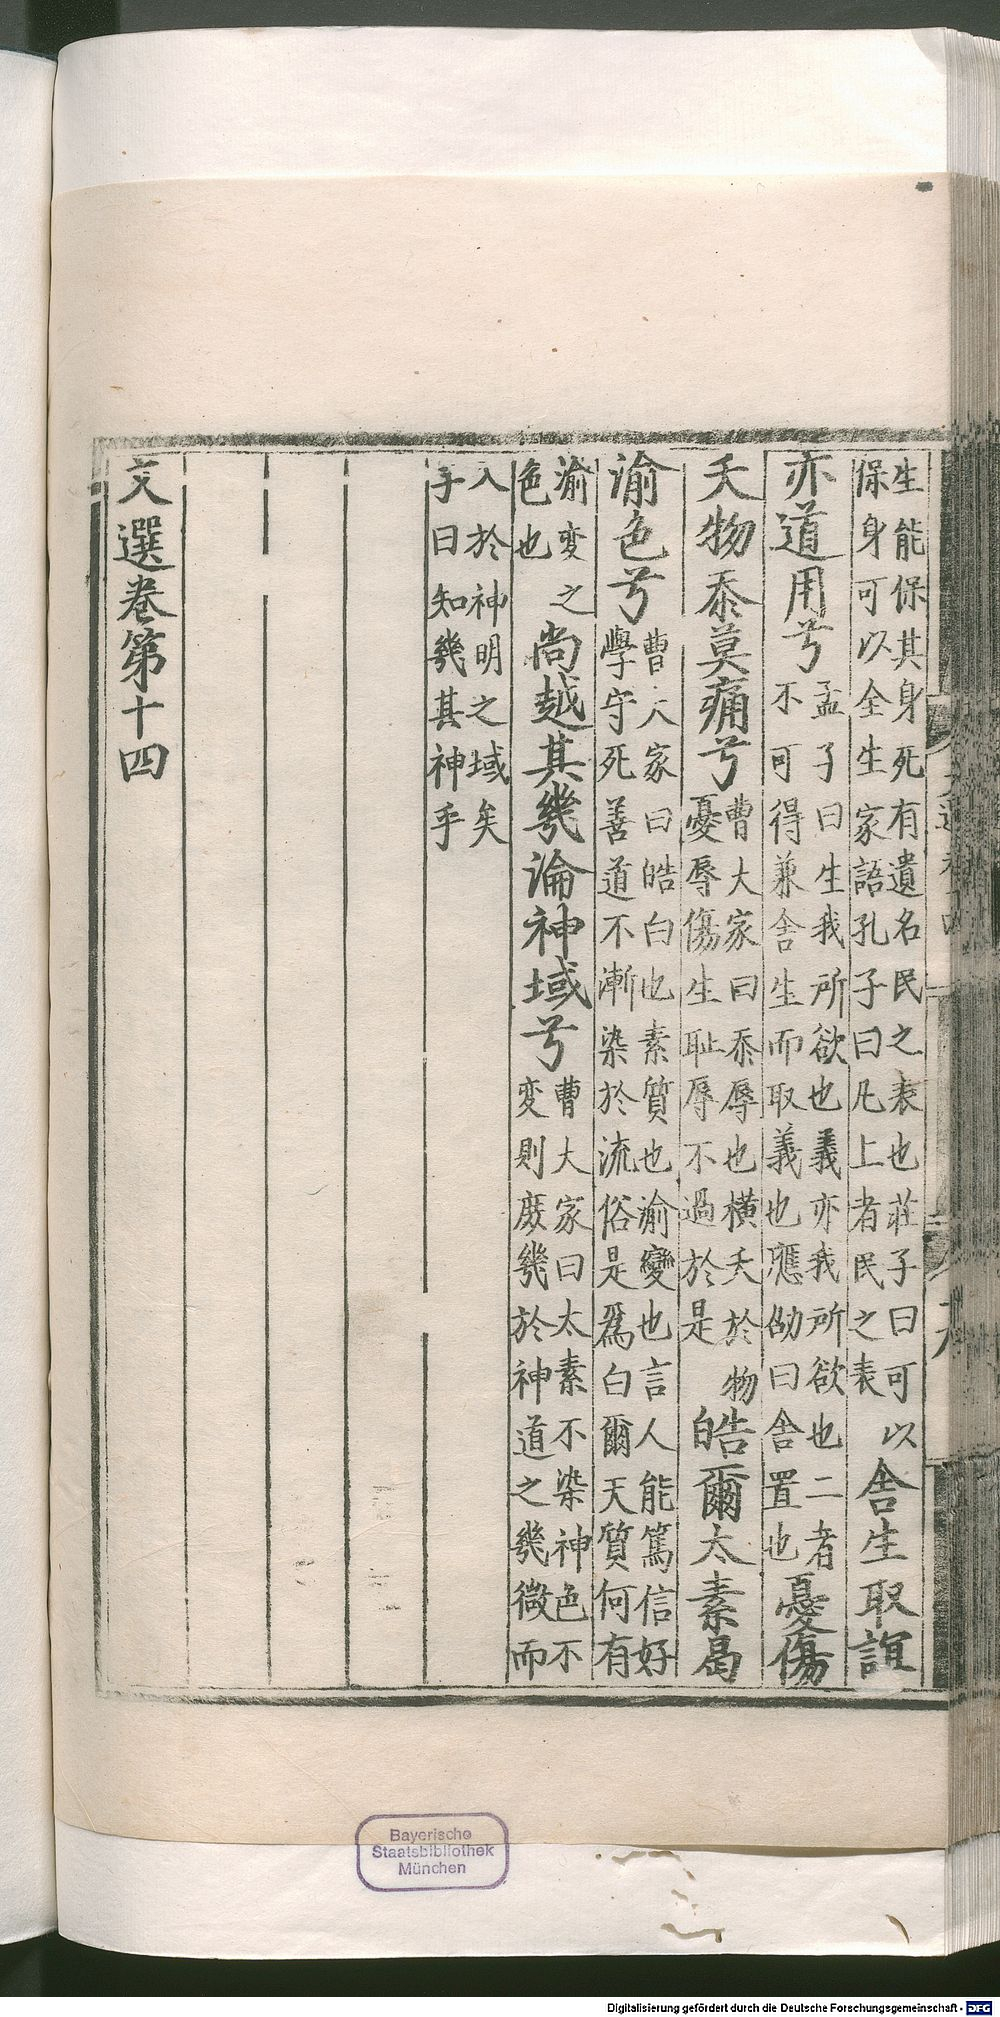 生能保其身死有遺名民之表也莊子曰可以
保身可以全生家語孔子曰凡上者民之表
舍生取誼
亦道用兮
孟子曰生我所欲也義亦我所欲也二者
不可得兼舍生而取義也應劭曰舍置也
憂傷
夭物忝莫痛兮
曹大家曰忝辱也橫夭於物
憂辱傷生耻辱不過於是
皓爾太素曷
渝色兮
曹大家曰皓白也素質也渝變也言人能篤信好
學守死善道不漸染於流俗是爲白爾天質何有
渝変之
色也
尚越其幾淪神域兮
曹大家曰太素不染神色不
変則庶幾於神道之幾微而
入於神明之域矣
子曰知幾其神乎
文選卷第十四
Bayerische
Staatsbibliothek
München
Digitalisierung gefördert durch die Deutsche Forschungsgemeinschaft - DFG